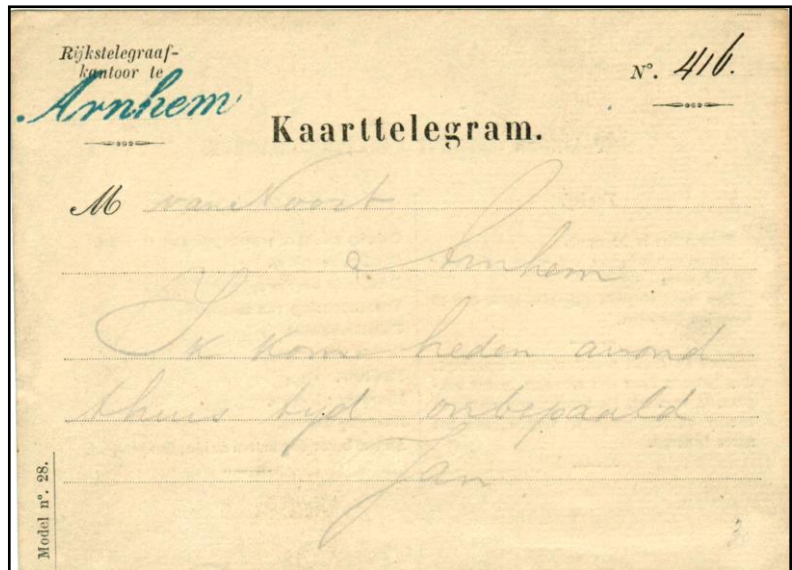 Rijkstelegraaf-
kantoor te
Arnhem
N°. 416.
Kaarttelegram.
M van Noort
Arnhem
Ik kom heden avond
thuis tijd onbepaald
Jan
Model n°. 28.